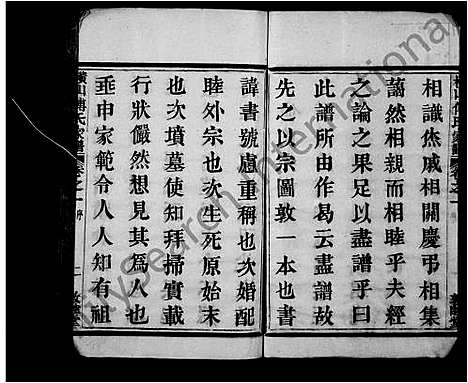 相識休戚相關慶弔相集
藹然相親而相睦乎夫經
之論之果足以盡譜乎曰
此譜所由作曷云盡譜故
先之以宗圖敦一本也書
諱書號慮重稱也次婚配
睦外宗也次生死原始末
也次墳墓使知拜掃實載
行狀儼然想見其為人也
垂申家範令人人知有祖
橫山傅氏家譜 卷之一 序
FamilySearch International